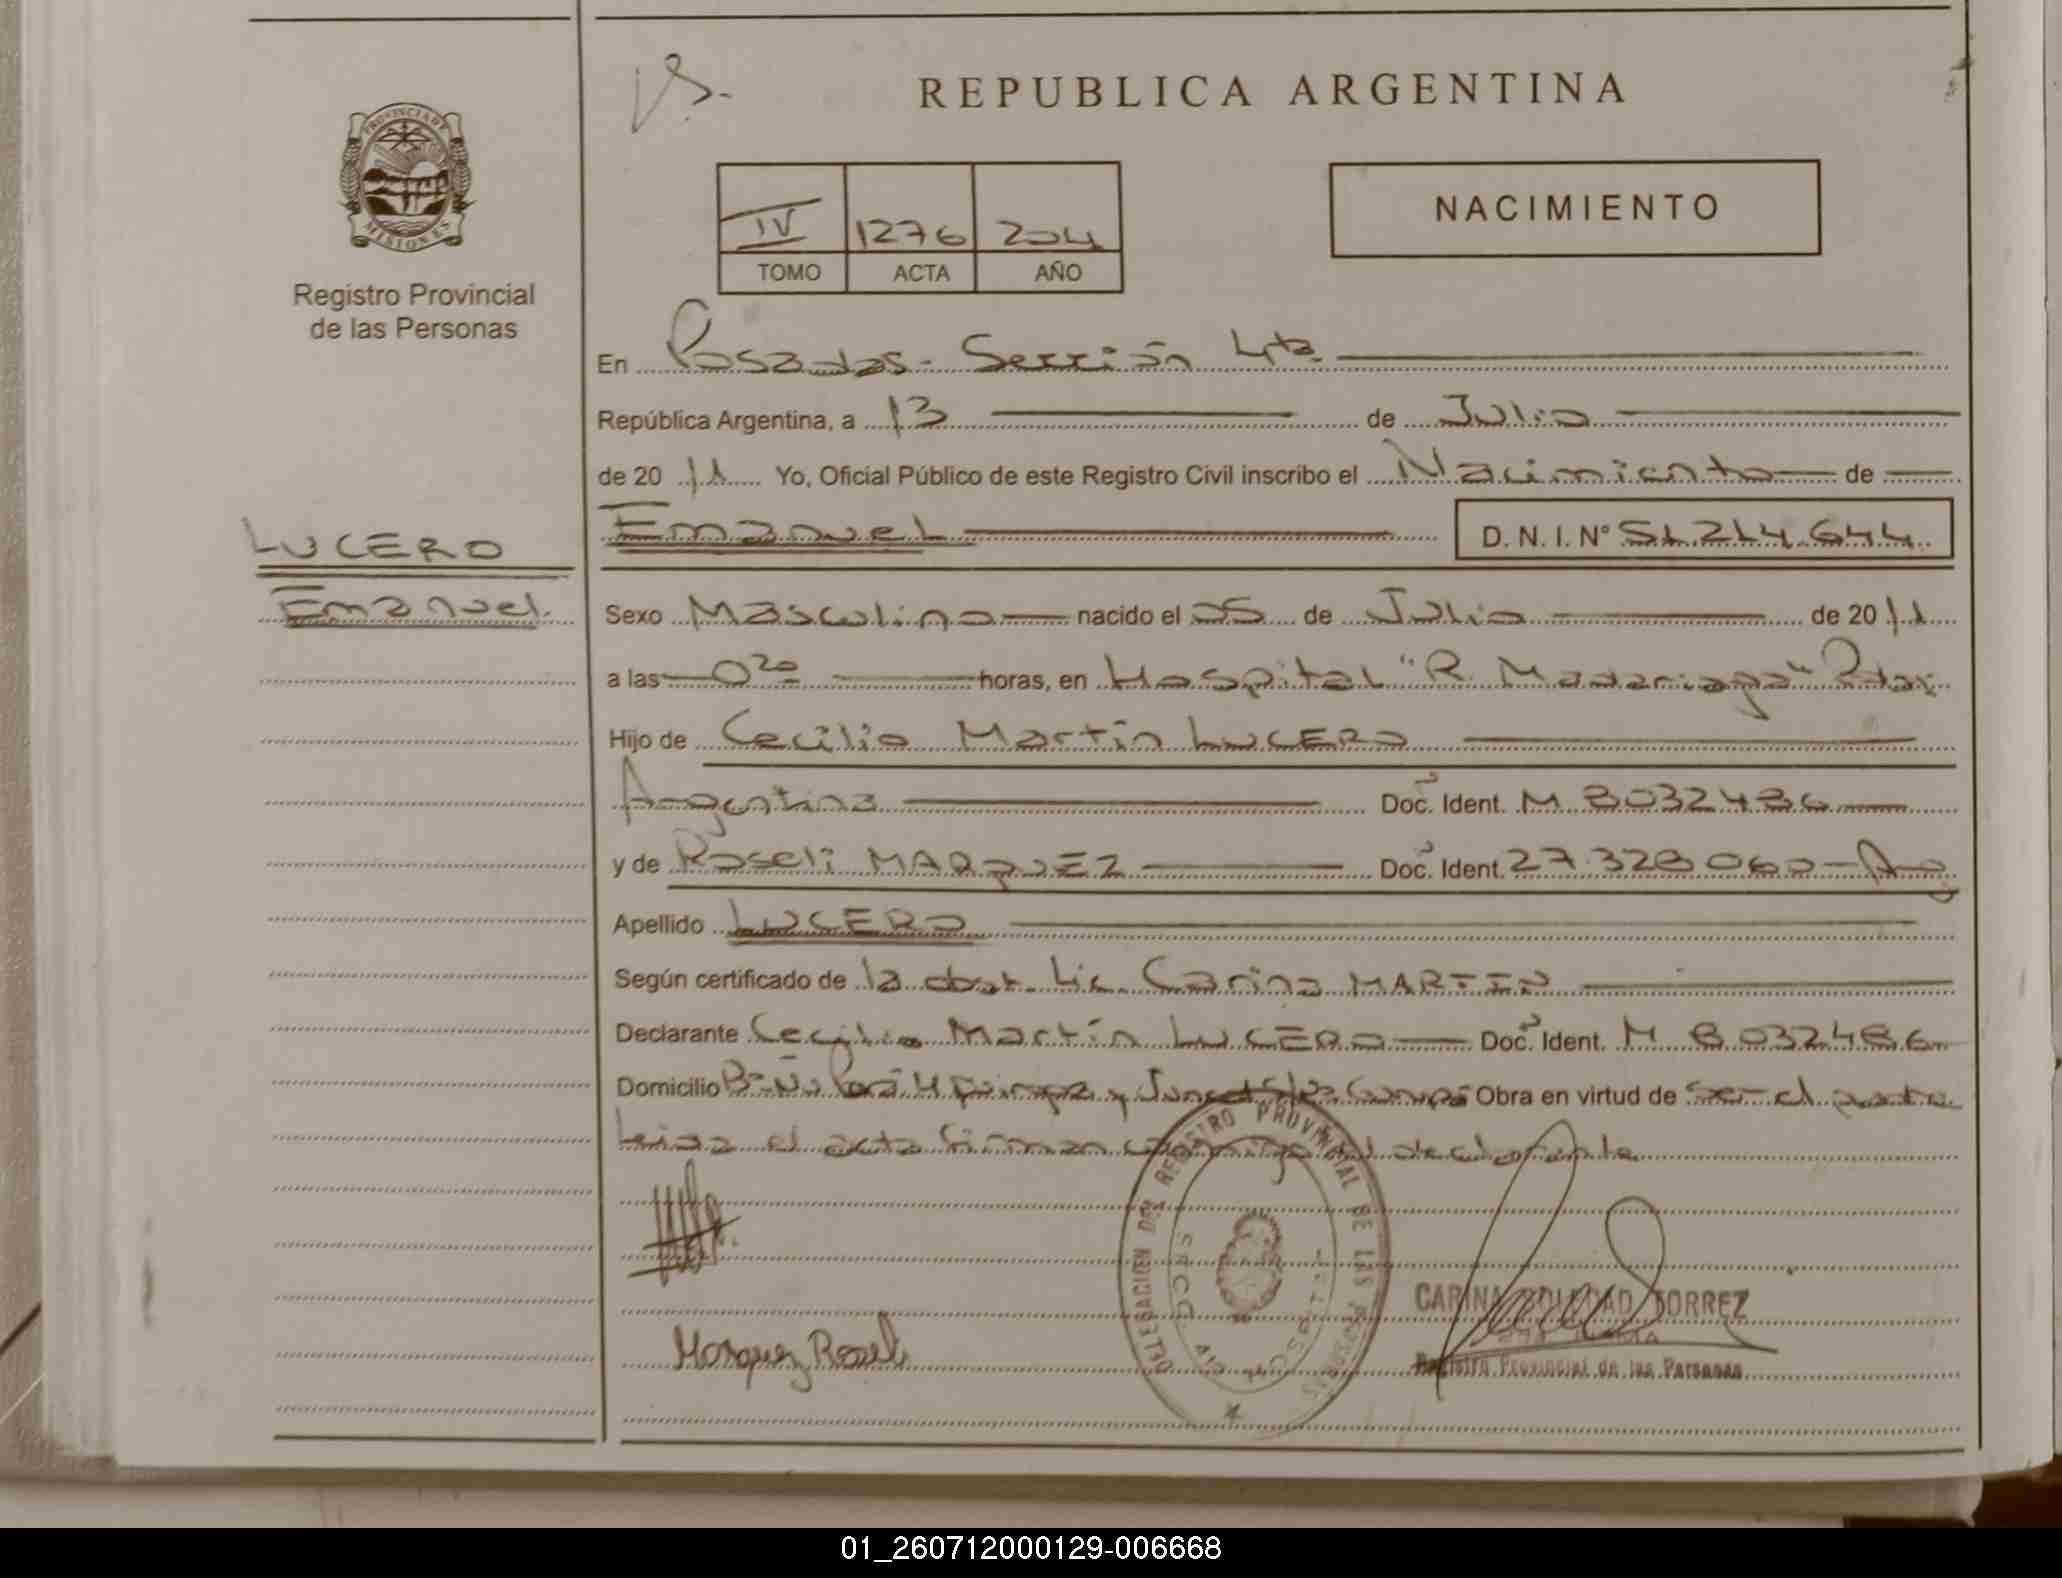 REPUBLICA ARGENTINA
PROVINCIA DE
MISIONES
Registro Provincial
de las Personas
IV 1276
TOMO ACTA AÑO
NACIMIENTO
En Posadas - Sección 4ta.
República Argentina, a 13 de Julio
de 2011 Yo, Oficial Público de este Registro Civil inscribo el Nacimiento de
Emanuel D. N. I. Nº 51.214.644
LUCERO
Emanuel.
Sexo Masculino nacido el 05 de Julio de 2011
a las 0 20 horas, en Hospital "R. Madariaga" Pdas.
Hijo de Cecilio Martín LUCERO
Argentina Doc. Ident. M 8032486
y de Roseli MARQUEZ Doc. Ident. 27.328.060 - Arg
Apellido LUCERO
Según certificado de la obst. Lic. Carina MARTIN
Declarante Cecilio Martín LUCERO Doc. Ident. M 8.032486
Domicilio Bº Ñu Porá Obra en virtud de ser el padre
leída el acta firman conmigo el declarante
Marquez Roseli
DELEGACION DEL REGISTRO PROVINCIAL DE LAS PERSONAS
CARINA SOLEDAD TORREZ
Registro Provincial de las Personas
01_260712000129-006668